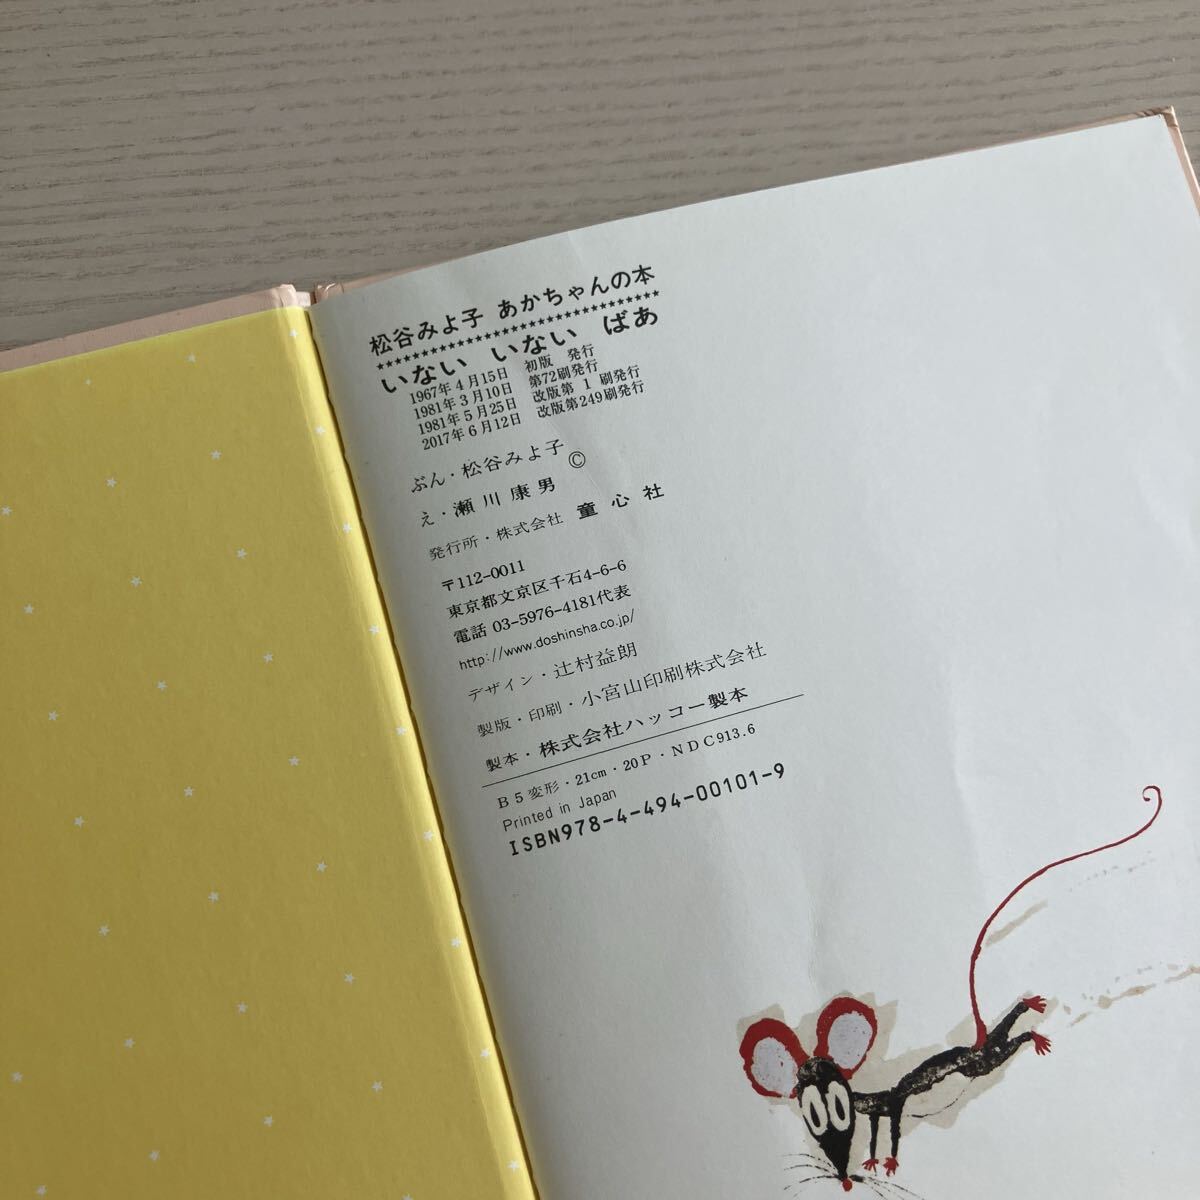 松谷みよ子 あかちゃんの本
いない いない ばあ
1967年4月15日 初版 発行
1981年3月10日 第72刷発行
1981年5月25日 改版第 1 刷発行
2017年6月12日 改版第249刷発行
ぶん・松谷みよ子
え・瀬川康男 ©
発行所・株式会社 童心社
〒112-0011
東京都文京区千石4-6-6
電話 03-5976-4181代表
http://www.doshinsha.co.jp/
デザイン・辻村益朗
製版・印刷・小宮山印刷株式会社
製本・株式会社ハッコー製本
B5変形・21cm・20P・NDC913.6
Printed in Japan
ISBN978-4-494-00101-9